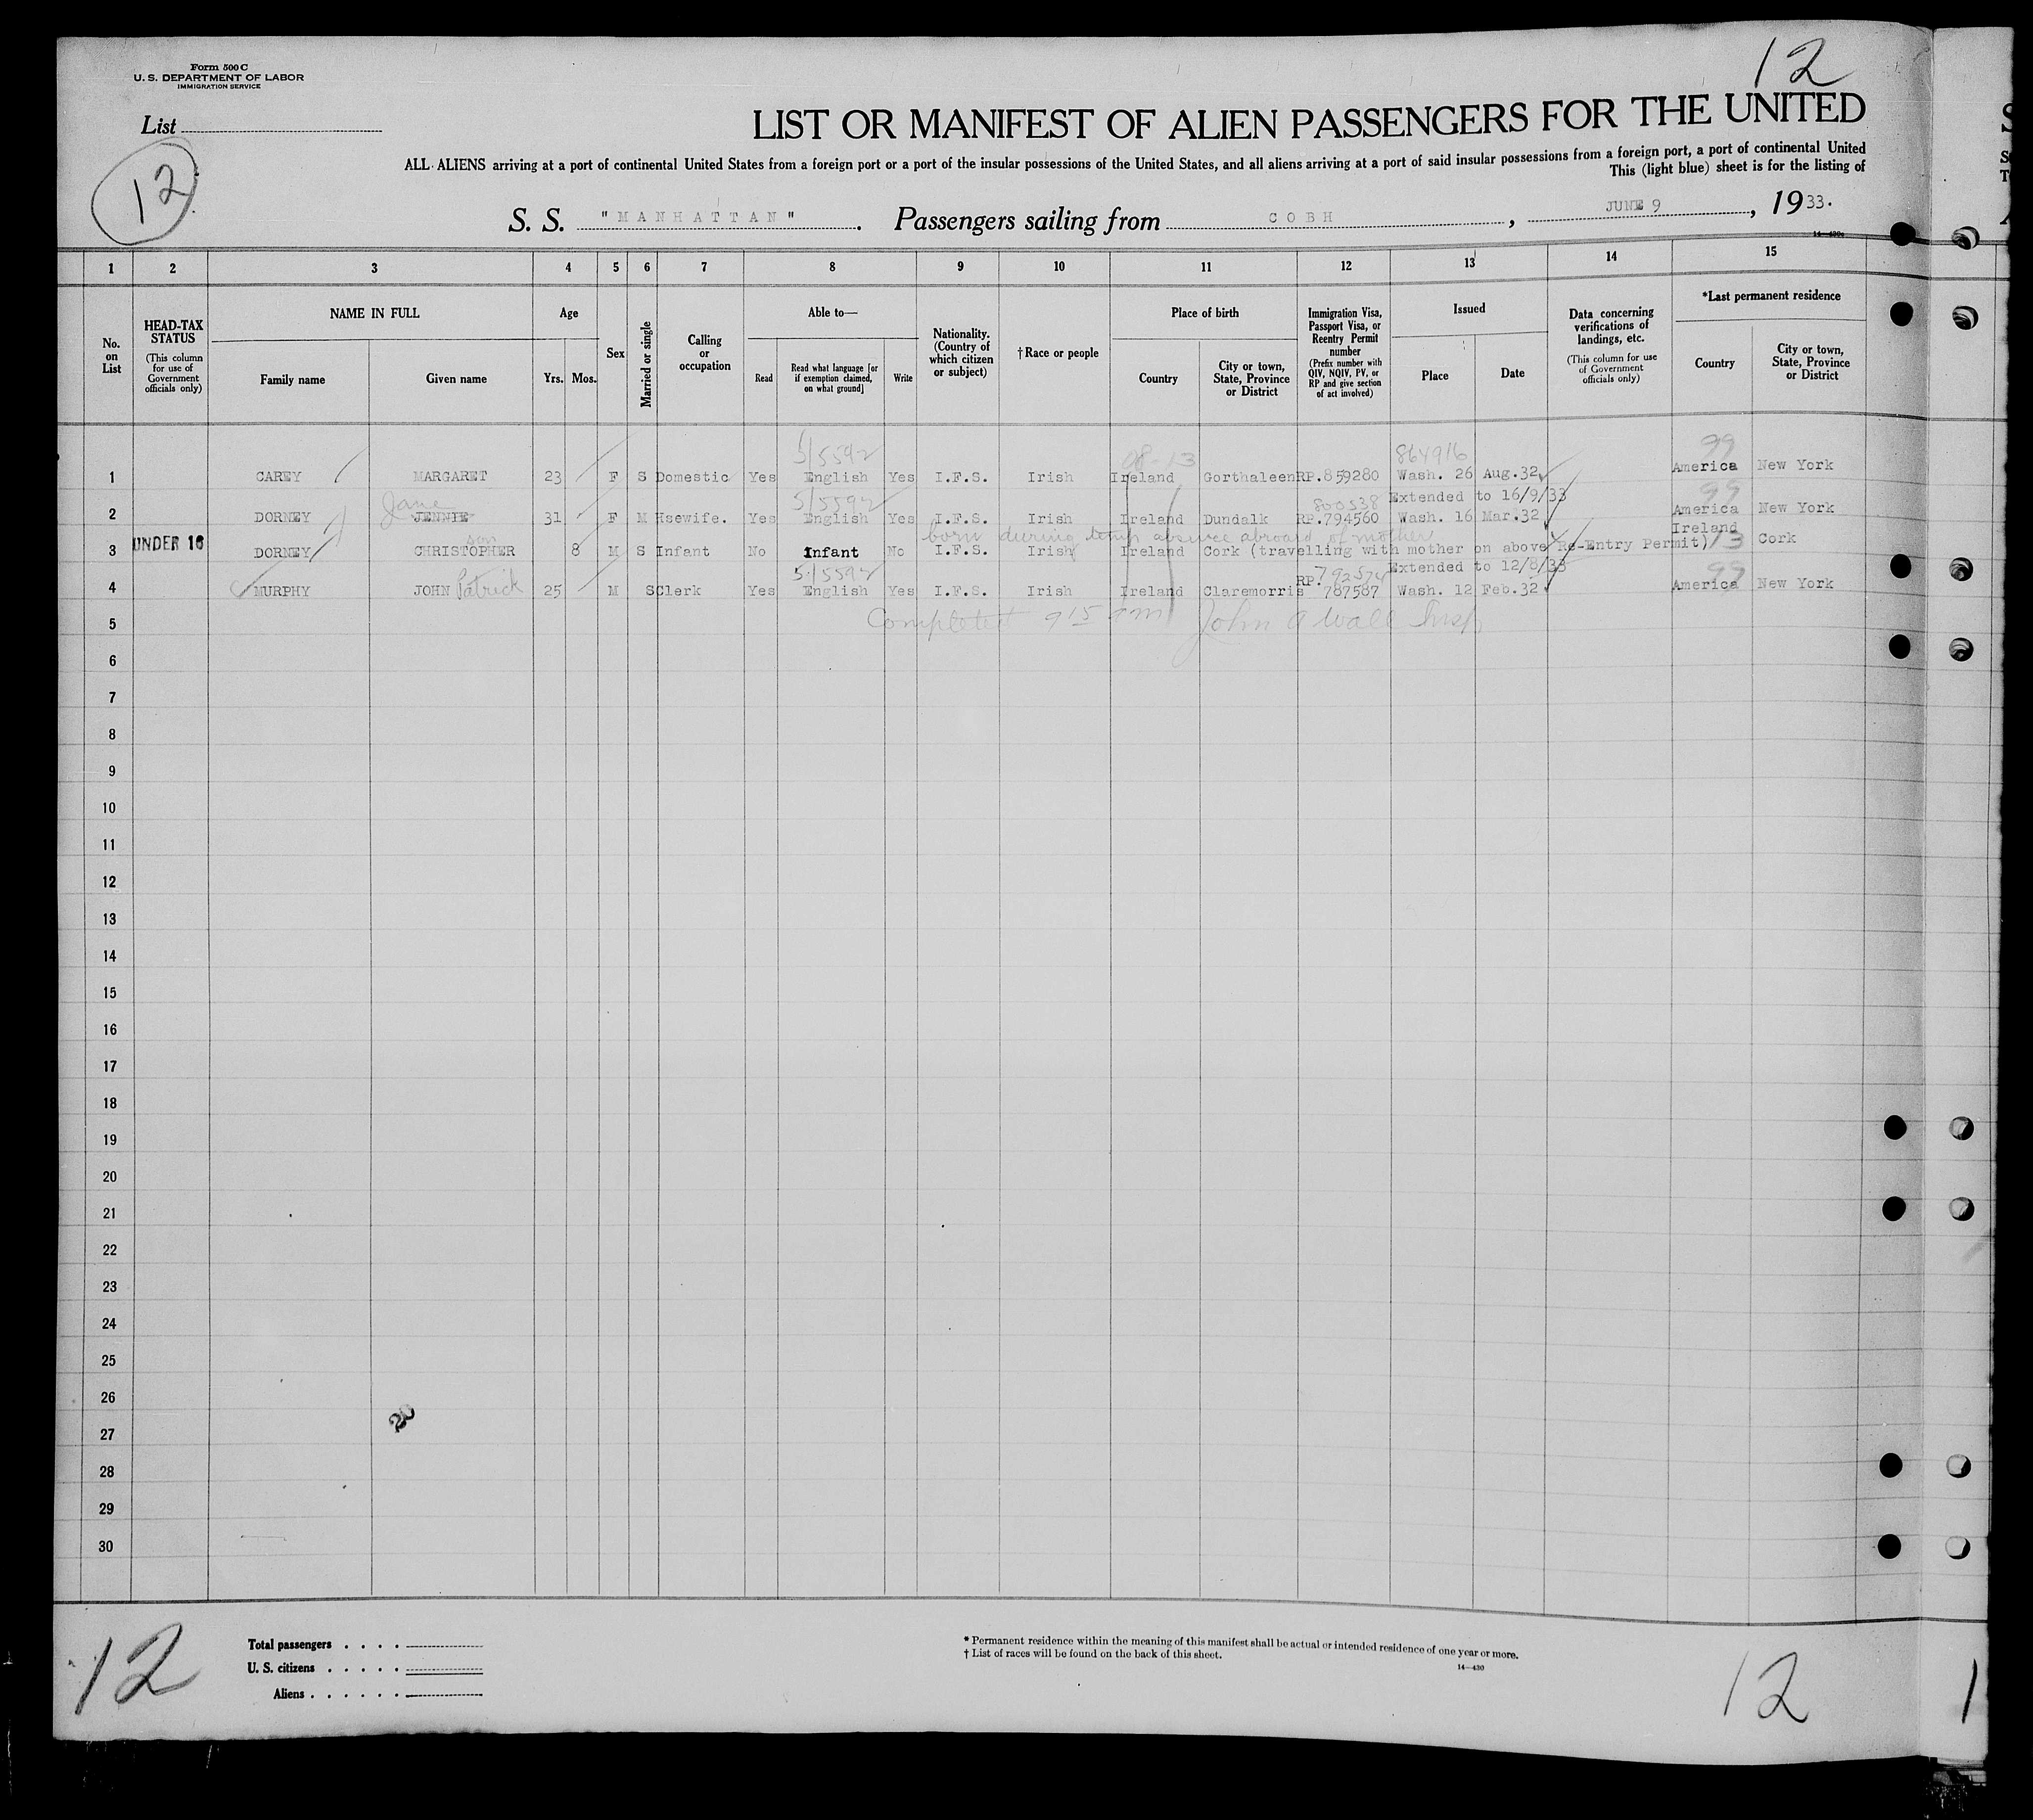 12
Form 500 C
U. S. DEPARTMENT OF LABOR
IMMIGRATION SERVICE
List
12
LIST OR MANIFEST OF ALIEN PASSENGERS FOR THE UNITED
ALL ALIENS arriving at a port of continental United States from a foreign port or a port of the insular possessions of the United States, and all aliens arriving at a port of said insular possessions from a foreign port, a port of continental United
This (light blue) sheet is for the listing of
S. S. "MANHATTAN". Passengers sailing from COBH, JUNE 9, 1933.
1 2 3 4 5 6 7 8 9 10 11 12 13 14 15
No. on List
HEAD-TAX STATUS (This column for use of Government officials only)
NAME IN FULL
Family name
Given name
Age
Yrs. Mos.
Sex
Married or single
Calling or occupation
Able to—
Read
Read what language [or if exemption claimed, on what ground]
Write
Nationality. (Country of which citizen or subject)
†Race or people
Place of birth
Country
City or town, State, Province or District
Immigration Visa, Passport Visa, or Reentry Permit number (Prefix number with QIV, NQIV, PV, or RP and give section of act involved)
Issued
Place
Date
Data concerning verifications of landings, etc. (This column for use of Government officials only)
*Last permanent residence
Country
City or town, State, Province or District
5/5592 08-13 864916 99
1 CAREY MARGARET 23 F S Domestic Yes English Yes I.F.S. Irish Ireland Gorthaleen RP.859280 Wash. 26 Aug.32 America New York
Jane 5/5592 800538 Extended to 16/9/33 99
2 DORNEY JENNIE 31 F M Hsewife. Yes English Yes I.F.S. Irish Ireland Dundalk RP.794560 Wash. 16 Mar.32 America New York
son born during temp absence abroad of mother Ireland
3 UNDER 16 DORNEY CHRISTOPHER 8 M S Infant No Infant No I.F.S. Irish Ireland Cork (travelling with mother on above Re-Entry Permit) 13 Cork
5/5592 792574 Extended to 12/8/33 99
4 MURPHY JOHN Patrick 25 M S Clerk Yes English Yes I.F.S. Irish Ireland Claremorris RP. 787587 Wash. 12 Feb.32 America New York
Completed 9 15 am John A Wall Insp
5
6
7
8
9
10
11
12
13
14
15
16
17
18
19
20
21
22
23
24
25
26
27
28
29
30
Total passengers
U. S. citizens
Aliens
* Permanent residence within the meaning of this manifest shall be actual or intended residence of one year or more.
† List of races will be found on the back of this sheet.
14—430
12
12
1